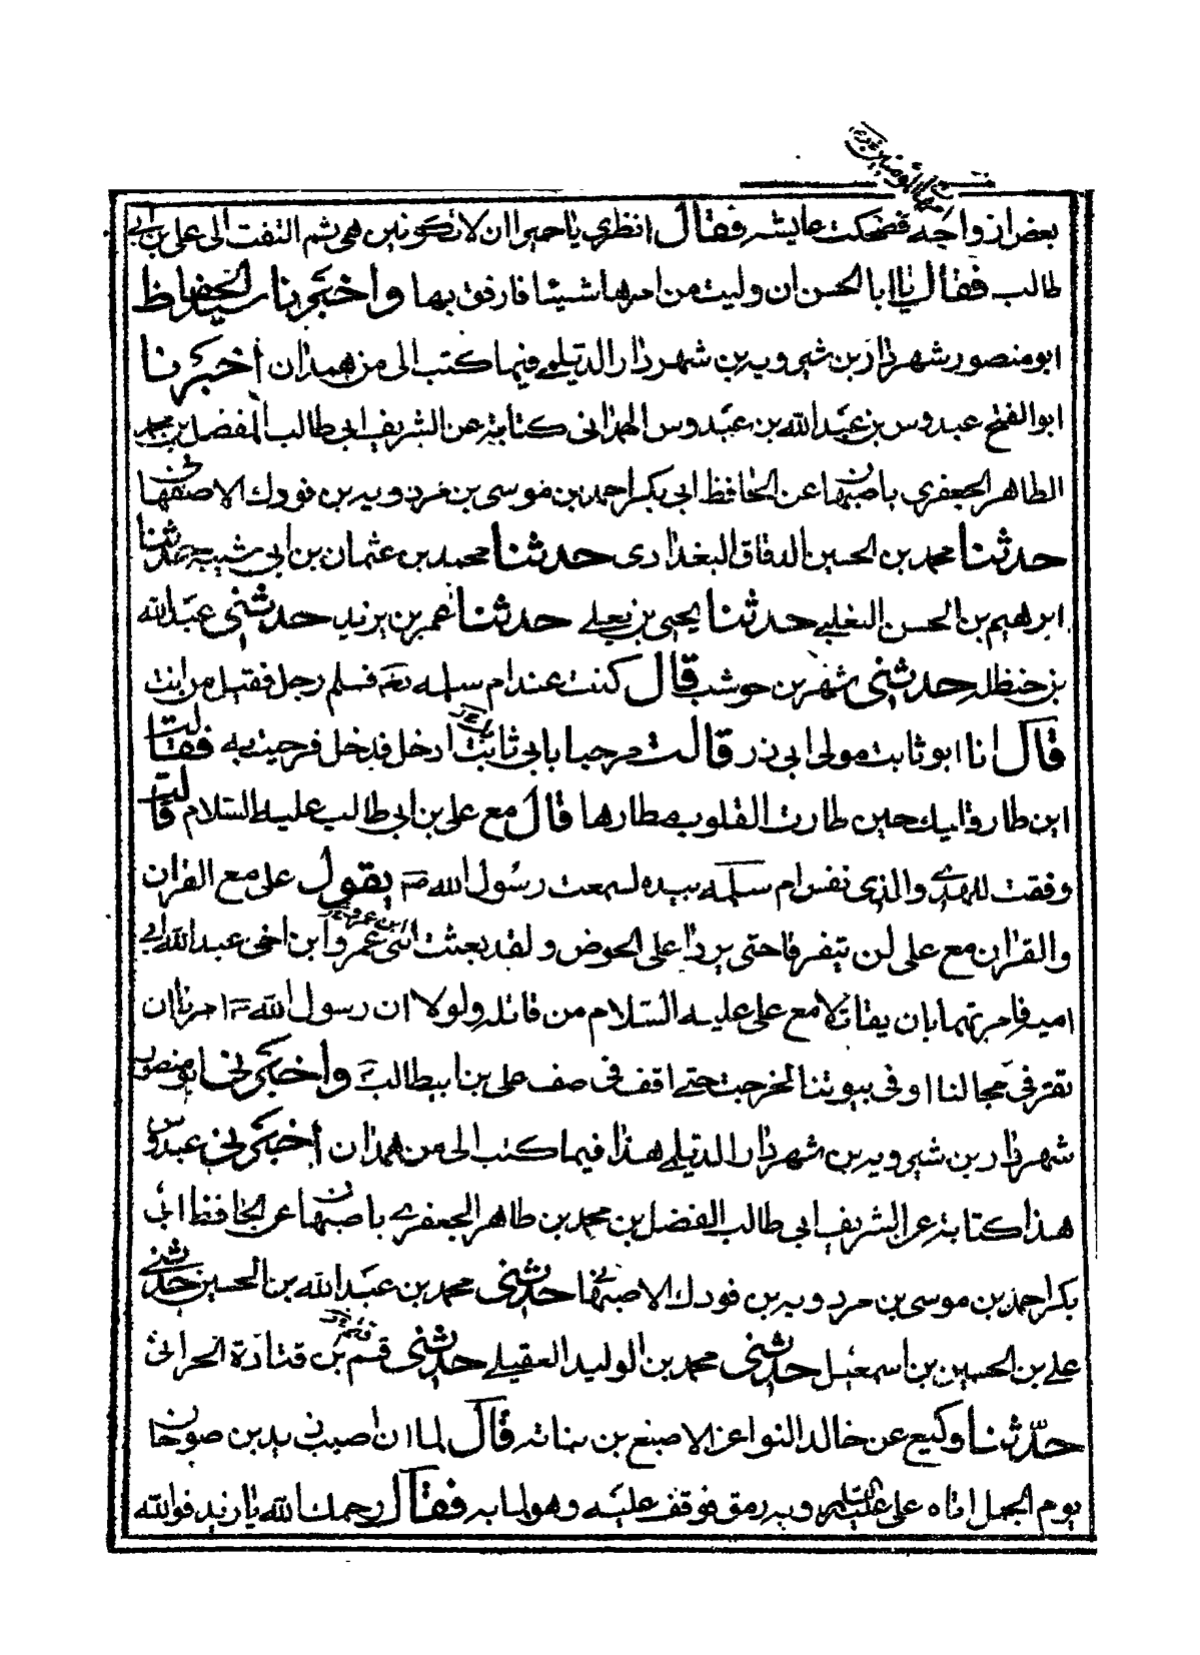 بعض ازواجه فضحكت عايشه فقال انظري يا حميرا ان لا تكونين هى ثم التفت الى على بن ابى
طالب فقال يا ابا الحسن ان وليت من امرها شيئا فارفق بها واخبرنا سيد الحفاظ
ابو منصور شهردار بن شيرويه بن شهردار الديلمي فيما كتب الى من همدان أخبرنا
ابو الفتح عبدوس بن عبد الله بن عبدوس الهمدانى كتابة عن الشريف ابى طالب المفضل بن محمد
الطاهر الجعفري باصبهان عن الحافظ ابى بكر احمد بن موسى بن مردويه بن فورك الاصفهانى
حدثنا محمد بن الحسين الدقاق البغدادى حدثنا محمد بن عثمان بن ابى شيبه حدثنا
ابرهيم بن الحسن التغلبي حدثنا يحيى بن يعلي حدثنا عمر بن يزيد حدثنى عبد الله
بن حنظله حدثنى شهر بن حوشب قال كنت عند ام سلمه فسلم رجل فقيل من انت
قال انا ابو ثابت مولى ابى ذر قالت مرحبا بابى ثابت ادخل فدخل فرحبت به فقالت
اين طار قلبك حين طارت القلوب مطارها قال مع على بن ابى طالب عليه السلام قالت
وفقت للهدي والذي نفس ام سلمه بيده لسمعت رسول الله ص يقول على مع القران
والقران مع على لن يتفرقا حتى يردا على الحوض ولقد بعثت ابنى عمر وابن اخى عبد الله ابى
اميه فامرتهما بان يقاتلا مع على عليه السلام من قاتله ولولا ان رسول الله ص امرنا ان
نقر فى حجالنا او فى بيوتنا لخرجت حتى اقف فى صف على بن ابيطالب واخبرنى ابو منصور
شهردار بن شيرويه بن شهردار الديلمي هذا فيما كتب الى من همدان أخبرنى عبدوس
هذا كتابة عن الشريف ابى طالب الفضل بن محمد بن طاهر الجعفري باصبهان عن الحافظ ابى
بكر احمد بن موسى بن مردويه بن فورك الاصبهانى حدثنى محمد بن عبد الله بن الحسين حدثنى
على بن الحسين بن اسمعيل حدثنى محمد بن الوليد العقيلي حدثنى قثم بن قتادة الحرانى
حدّثنا وكيع عن خالد النوا عن الاصبغ بن نباته قال لما ان اصيب زيد بن صوحان
يوم الجمل اتاه على عليه السلام وبه رمق فوقف عليه وهو لما به فقال رحمك الله يا زيد فوالله